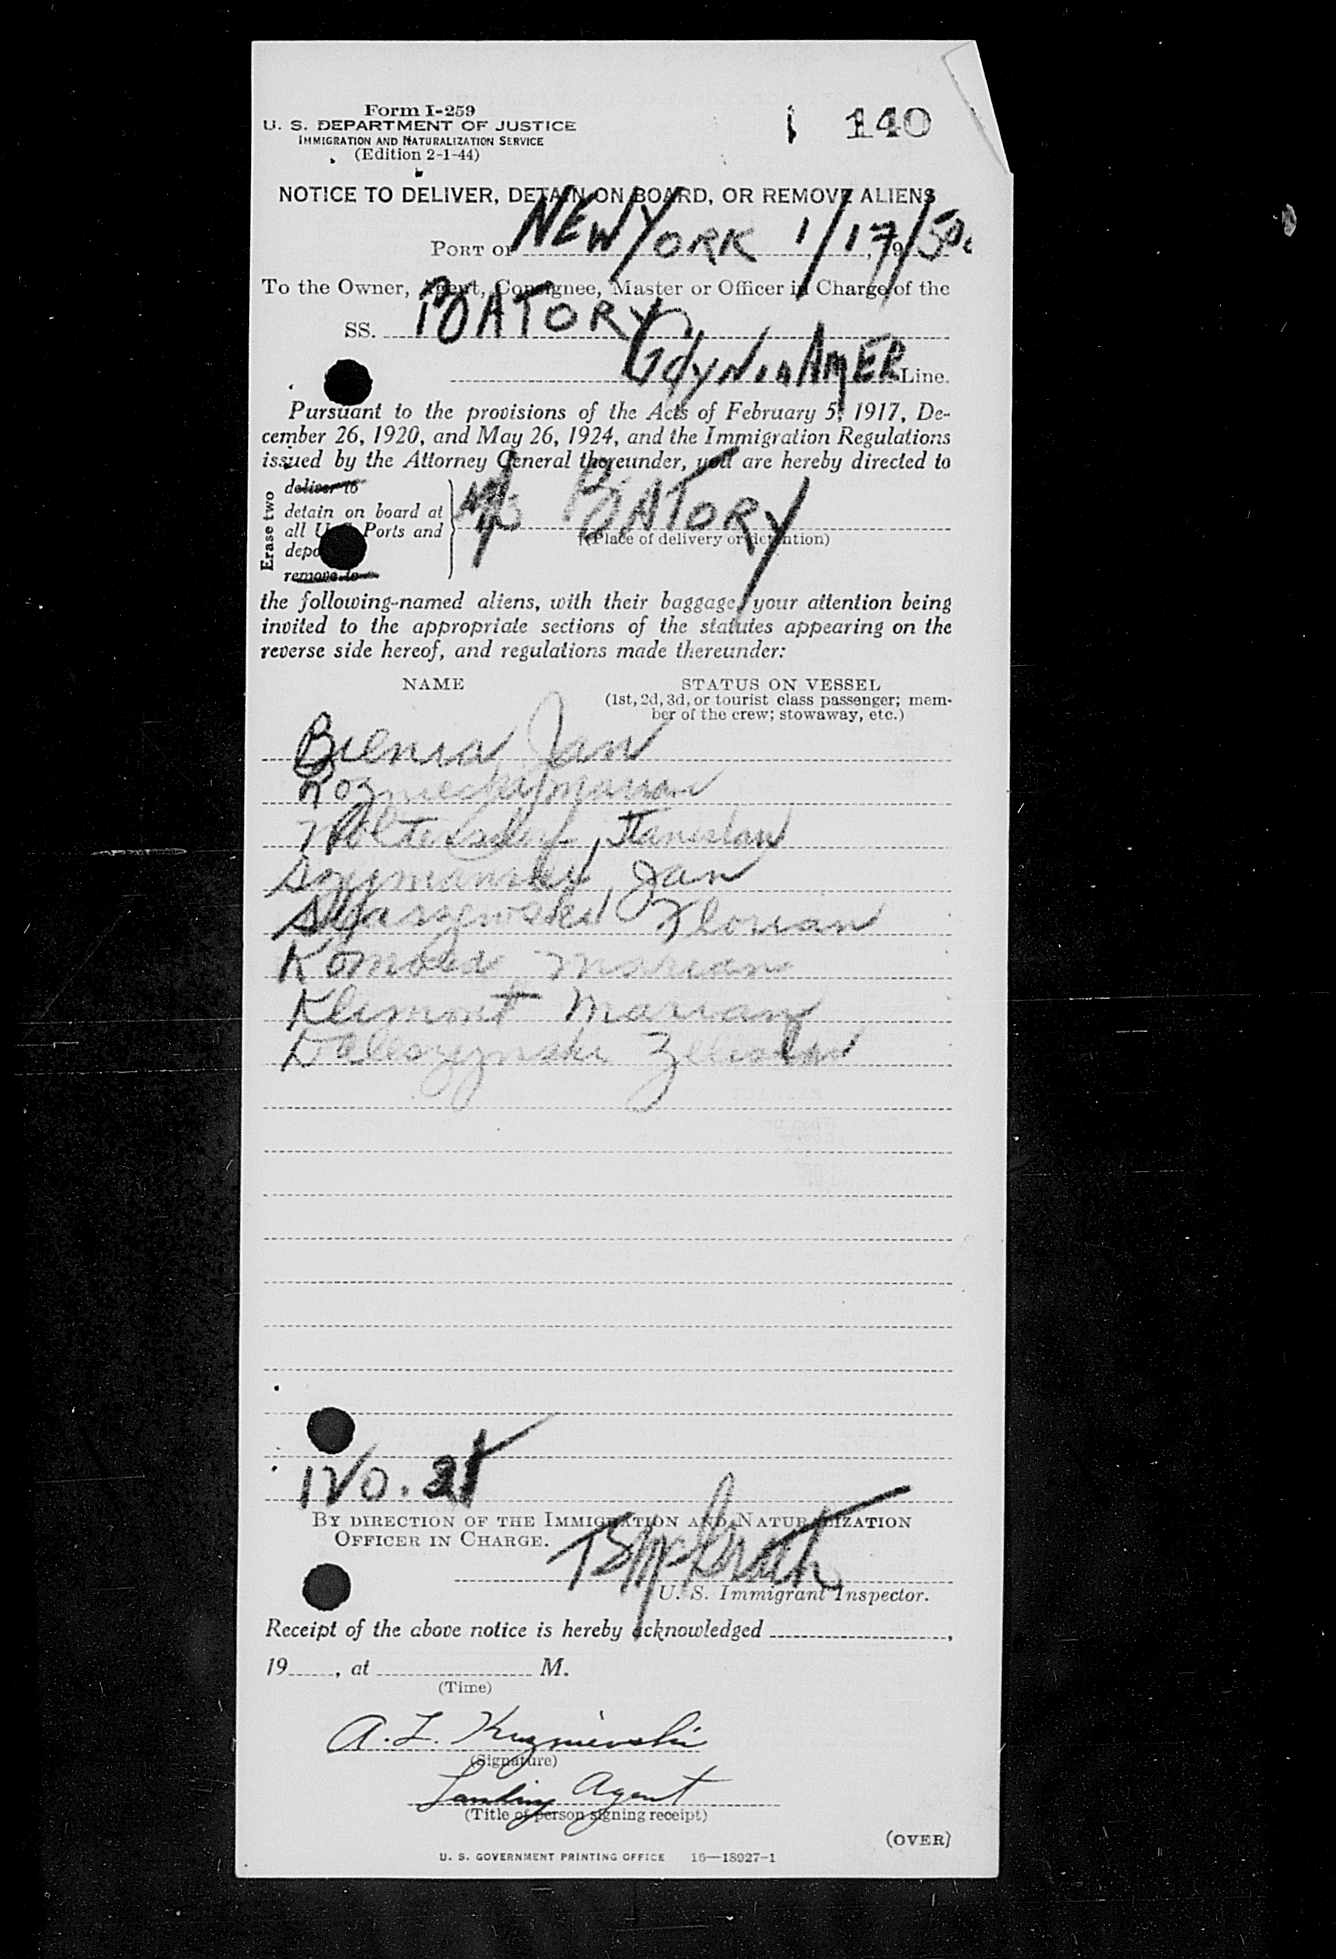 Form I-259
U. S. DEPARTMENT OF JUSTICE
IMMIGRATION AND NATURALIZATION SERVICE
(Edition 2-1-44)
140
NOTICE TO DELIVER, DETAIN ON BOARD, OR REMOVE ALIENS
PORT OF NEW YORK 1/17/50, 19
To the Owner, Agent, Consignee, Master or Officer in Charge of the
SS. BATORY
GdyniaAMER Line.
Pursuant to the provisions of the Acts of February 5, 1917, De-
cember 26, 1920, and May 26, 1924, and the Immigration Regulations
issued by the Attorney General thereunder, you are hereby directed to
Erase two
deliver to
detain on board at
all U. S. Ports and
deport
remove to
BATORY
(Place of delivery or detention)
the following-named aliens, with their baggage, your attention being
invited to the appropriate sections of the statutes appearing on the
reverse side hereof, and regulations made thereunder:
NAME STATUS ON VESSEL
(1st, 2d, 3d, or tourist class passenger; mem-
ber of the crew; stowaway, etc.)
Bienia Jan
Rozniecki, Marian
Stanislaw
Szymanski, Jan
Florian
Komosa Marian
Klimont Marian
Daleszynski
No. 28
BY DIRECTION OF THE IMMIGRATION AND NATURALIZATION
OFFICER IN CHARGE.
U. S. Immigrant Inspector.
Receipt of the above notice is hereby acknowledged ,
19 , at M.
(Time)
A. L. Kuzniewski
(Signature)
Landing Agent
(Title of person signing receipt)
(OVER)
U. S. GOVERNMENT PRINTING OFFICE 16—18927-1